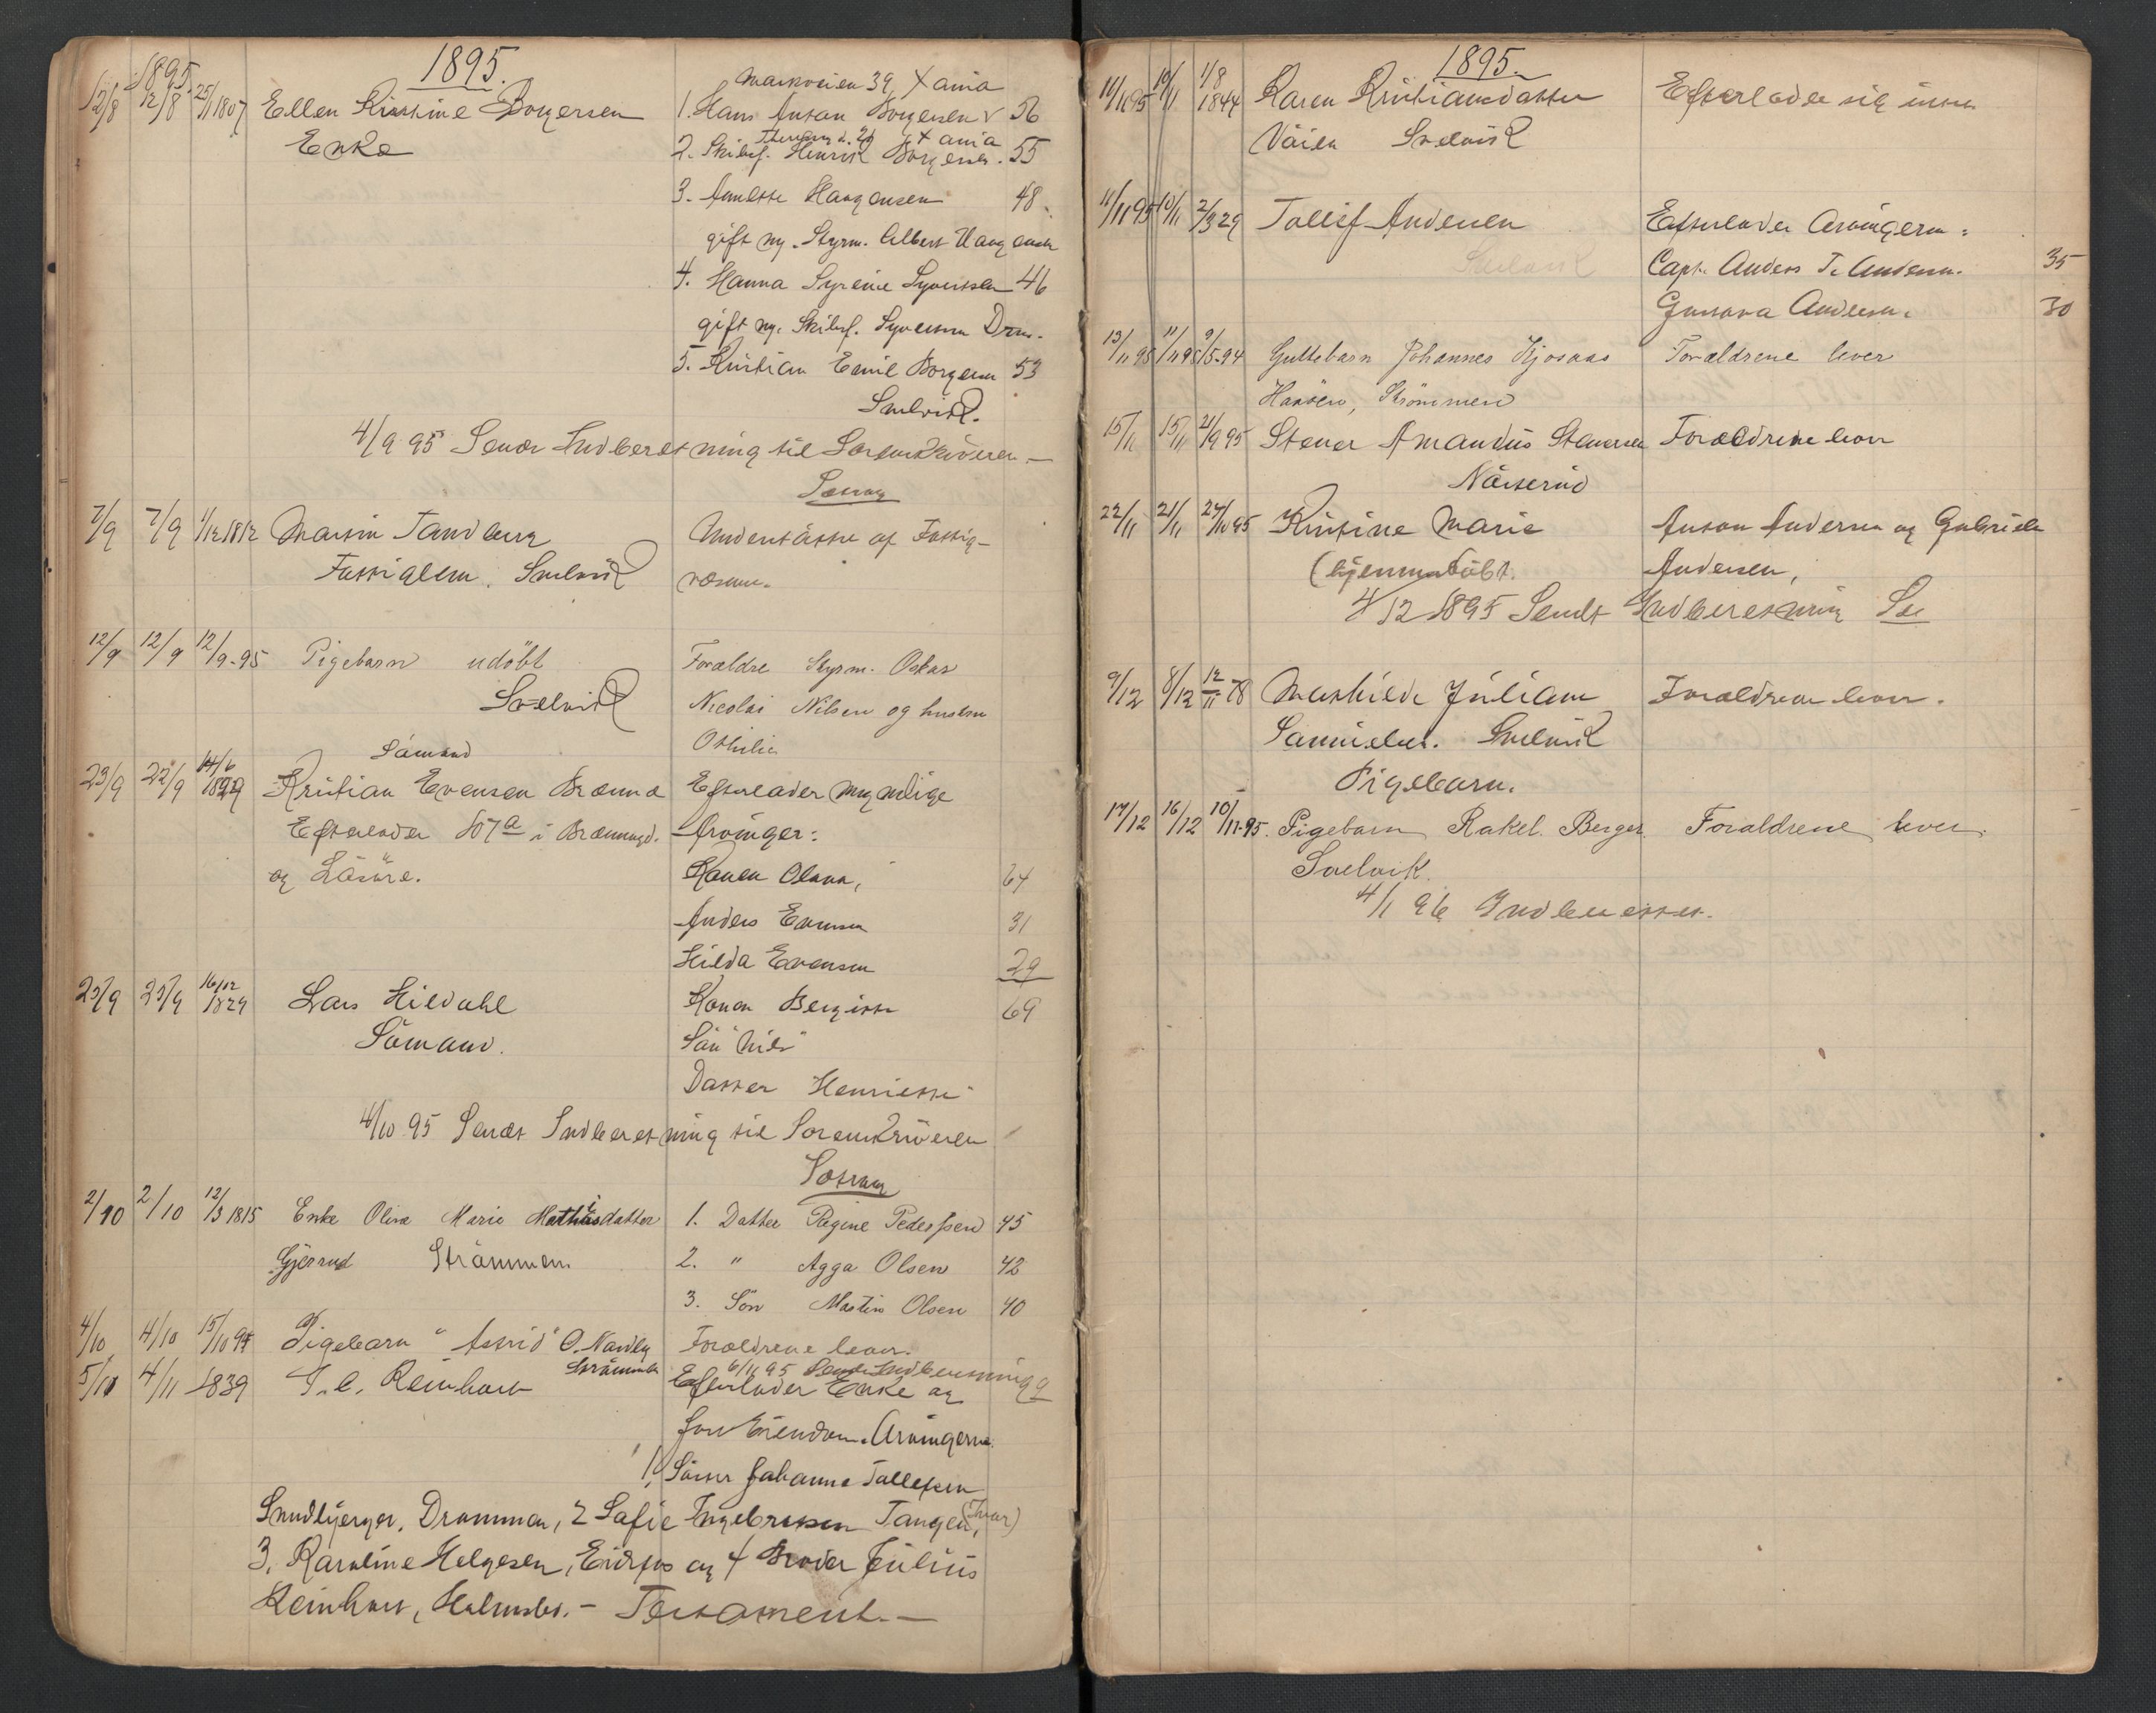 1895.
1895.
12/8 12/8 25/1 1807 Ellen Kirstine Borgersen
Enke
Markveien 39, Xania
1. Hans Anton Borgersen 56
Xania
2. Skibsf. Henrik Borgersen. 55
3. Annette Haagensen 48.
gift m. Styrm. Albert Haagensen
4. Hanna Syrene Syvertsen 46
gift m. Skibsf. Syvertsen Drm.
5. Kristian Emil Borgersen 53
Svelvik.
4/9 95 Sendt Indberetning til Sorenskriveren —
7/9 7/9 1/12 1812 Martin Tandberg Understøttet af Fattig-
Fattiglem. Svelvik væsenet.
12/9 12/9 12/9-95 Pigebarn udöbt Forældre Styrm. Oskar
Svelvik Nicolai Nilsen og hustru
Othilie
Sömand
23/9 22/9 14/6 1829 Kristian Evensen Brænna Efterlader myndige
Efterlader i Brænna Arvinger:
og Lövöre.
Konen Olava, 64
Anders Evensen 31
Hilda Evensen 29
25/9 25/9 16/12 1824 Lars Hildahl Konen Bergitte 69
Sömand. Sön "Nils"
Datter Henriette
4/10 95 Sendt Indberetning til Sorenskriveren
2/10 2/10 12/3 1815 Enke Olive Marie Mathiasdatter 1. Datter Regine Pedersen 45
Gjerrud Strömmen. 2. " Agga Olsen 42
3. Sön Martin Olsen 40
4/10 4/10 15/10 94 Pigebarn "Astrid" O. Nardby Forældrene lever.
Strömmen 6/11 95 Sendt Indberetning
5/11 4/11 1839 T. C. Reinhart Efterlader Enke og
fast Eiendom. Arvingerne:
1, Söster Johanne Tollefsen
Smudbjerger, Drammen, 2 Sofie Ingebretsen Tangen, (Svær)
3, Karoline Helgesen, Eidsfos og 4 Broder Julius
Reinhart, Holmsbo. — Testament. —
1895.
11/11 95 10/11 1/8 1844 Karen Kristiansdatter Efterlader sig intet
Veien Svelvik
11/11 95 10/11 2/3 29 Tollef Andersen Efterlader Arvingerne:
Svelvik Capt. Anders T. Andersen. 35
Gustava Andersen. 30
13/11 95 11/11 95 9/5-94 Guttebarn Johannes Kjosaas Forældrene lever
Hansen, Strömmen
15/11 15/11 21/9 95 Stener Amandus Stenersen Forældrene lever
Nöisterud
22/11 21/11 24/10 95 Kristine Marie Anton Andersen og Gabriele
(hjemmedöbt. Andersen,
4/12 1895 Sendt Indberetning
9/12 8/12 12/11 78 Mathilde Juliane Forældrene lever.
Samuelsen. Svelvik
Pigebarn.
17/12 16/12 10/11-95. Pigebarn Rakel Berger Forældrene lever.
Svelvik.
4/1 96 Indberettet.